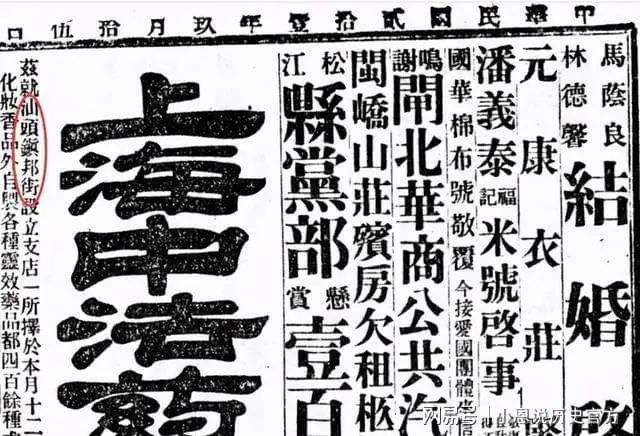 中華民國貳拾壹年玖月拾伍日
馬蔭良
林德馨
結婚
元康衣莊
潘義泰福記米號啓事
國華棉布號敬覆 今接愛國團體
鳴謝閘北華商公共汽
閩嶠山莊殯房欠租柩
松江縣黨部懸賞壹百
上海中法
茲就汕頭鎮邦街設立支店一所擇於本月十二
化妝香品外自製各種靈效藥品都四百餘種
网易号 | 小恩说历史官方